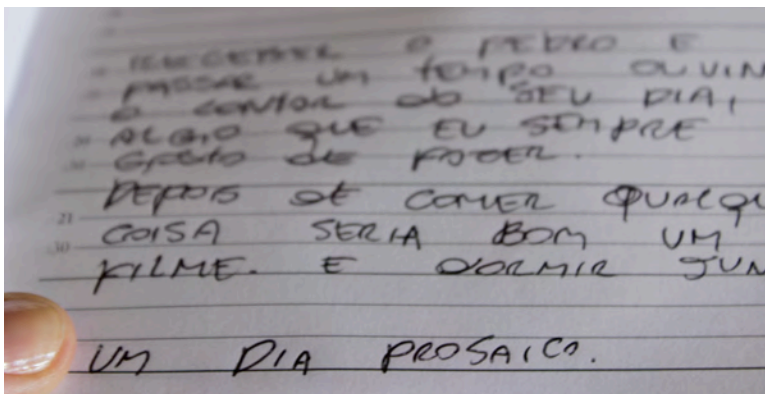 RECEBER O PEDRO E
PASSAR UM TEMPO OUVIN
O CONTAR DO SEU DIA,
ALGO QUE EU SEMPRE
GOSTO DE FAZER.
DEPOIS DE COMER QUALQU
21
COISA SERIA BOM UM
30
FILME. E DORMIR JUN
UM DIA PROSAICO.